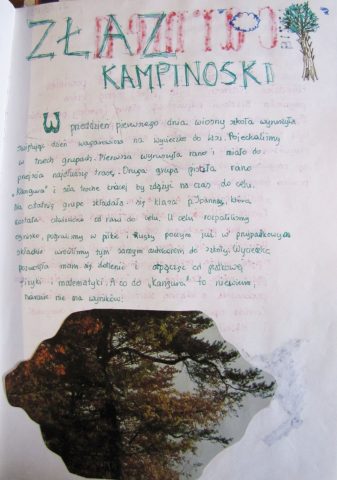 ZŁAZ
KAMPINOSKI
W przeddzień pierwszego dnia wiosny szkoła wyruszyła
dzień wagarowania na wycieczkę do lasu. Pojechaliśmy
w trzech grupach. Pierwsza wyruszyła rano i miała do
przejścia najdłuższą trasę. Druga grupa pisała rano
„Kangura" i szła trochę krócej by zdążyć na czas do celu.
Na ostatnią grupę składała się klasa p. Joanny, która
została od razu do celu. U celu rozpaliliśmy
ognisko, pograliśmy w piłkę i poczym już w przypadkowym
składzie wróciliśmy tym samym autokarem do szkoły. Wycieczka
pozwoliła nam się dotlenić i odpocząć od
fizyki i matematyki. A co do „Kangura" to niewiem,
narazie nie ma wyników.